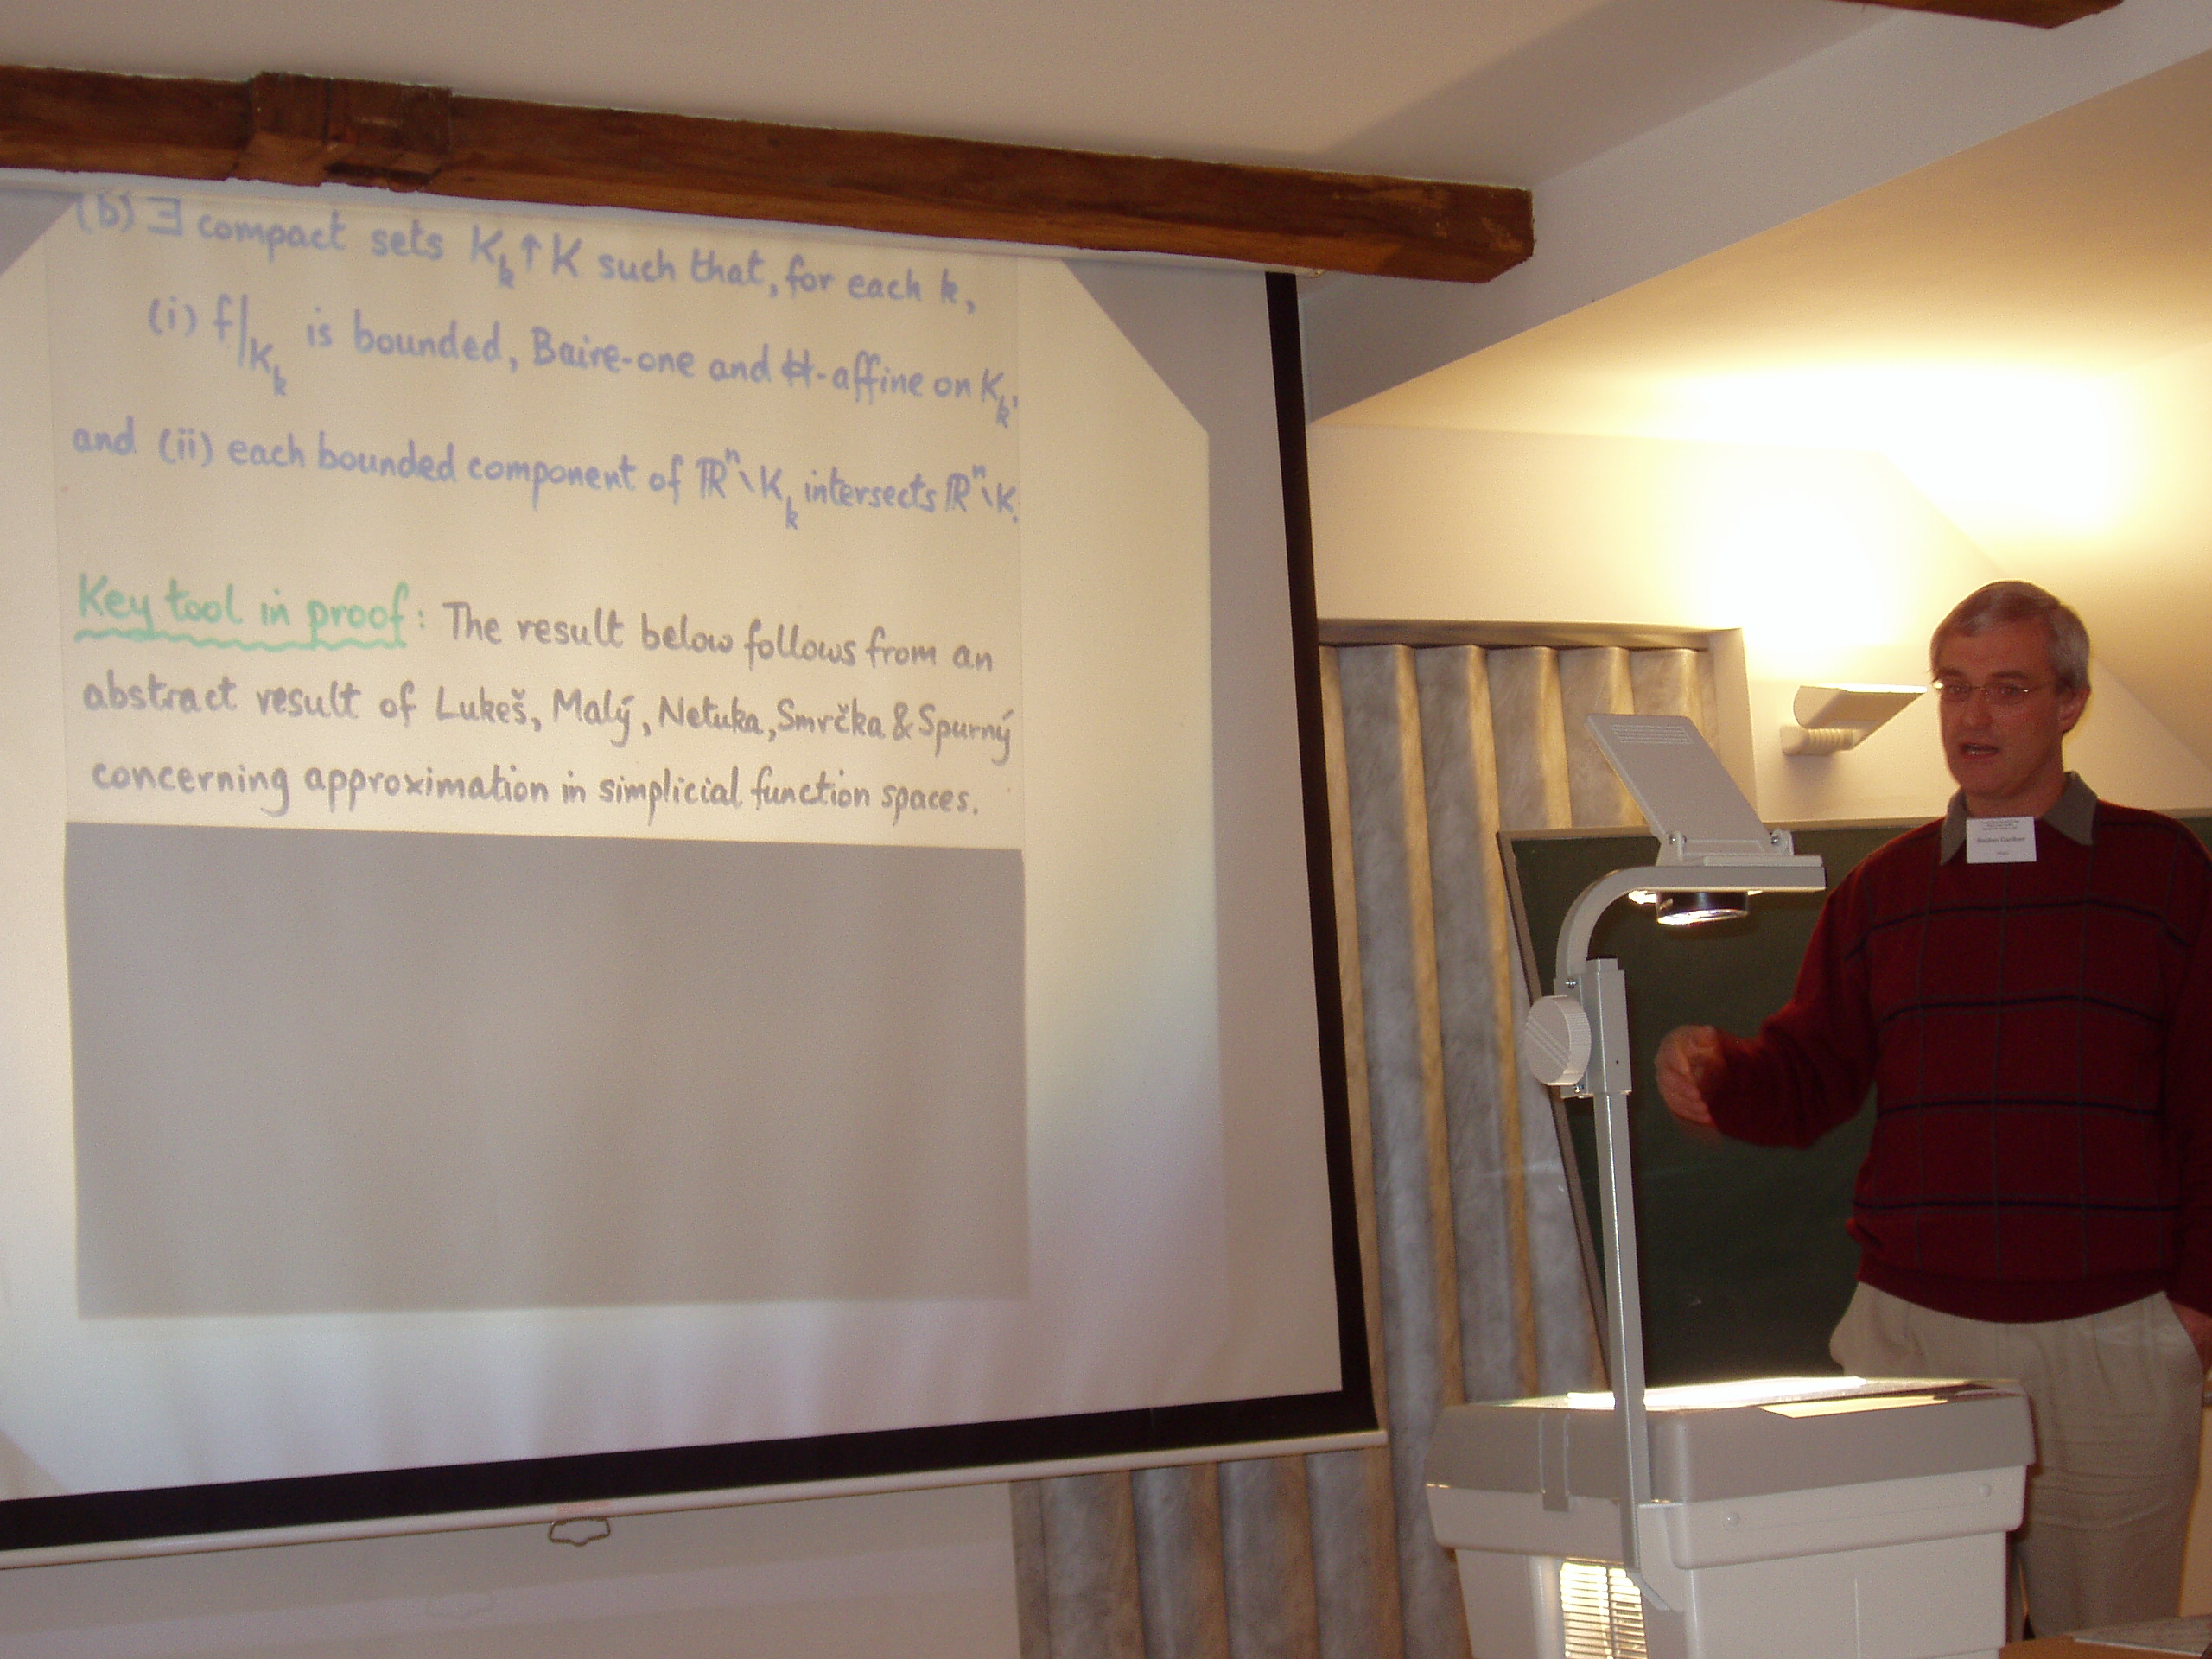 (b) ∃ compact sets K_k ↑ K such that, for each k,
(i) f|_{K_k} is bounded, Baire-one and H-affine on K_k,
and (ii) each bounded component of ℝⁿ\K_k intersects ℝⁿ\K.
Key tool in proof: The result below follows from an
abstract result of Lukeš, Malý, Netuka, Smrčka & Spurný
concerning approximation in simplicial function spaces.
Stephen Gardiner